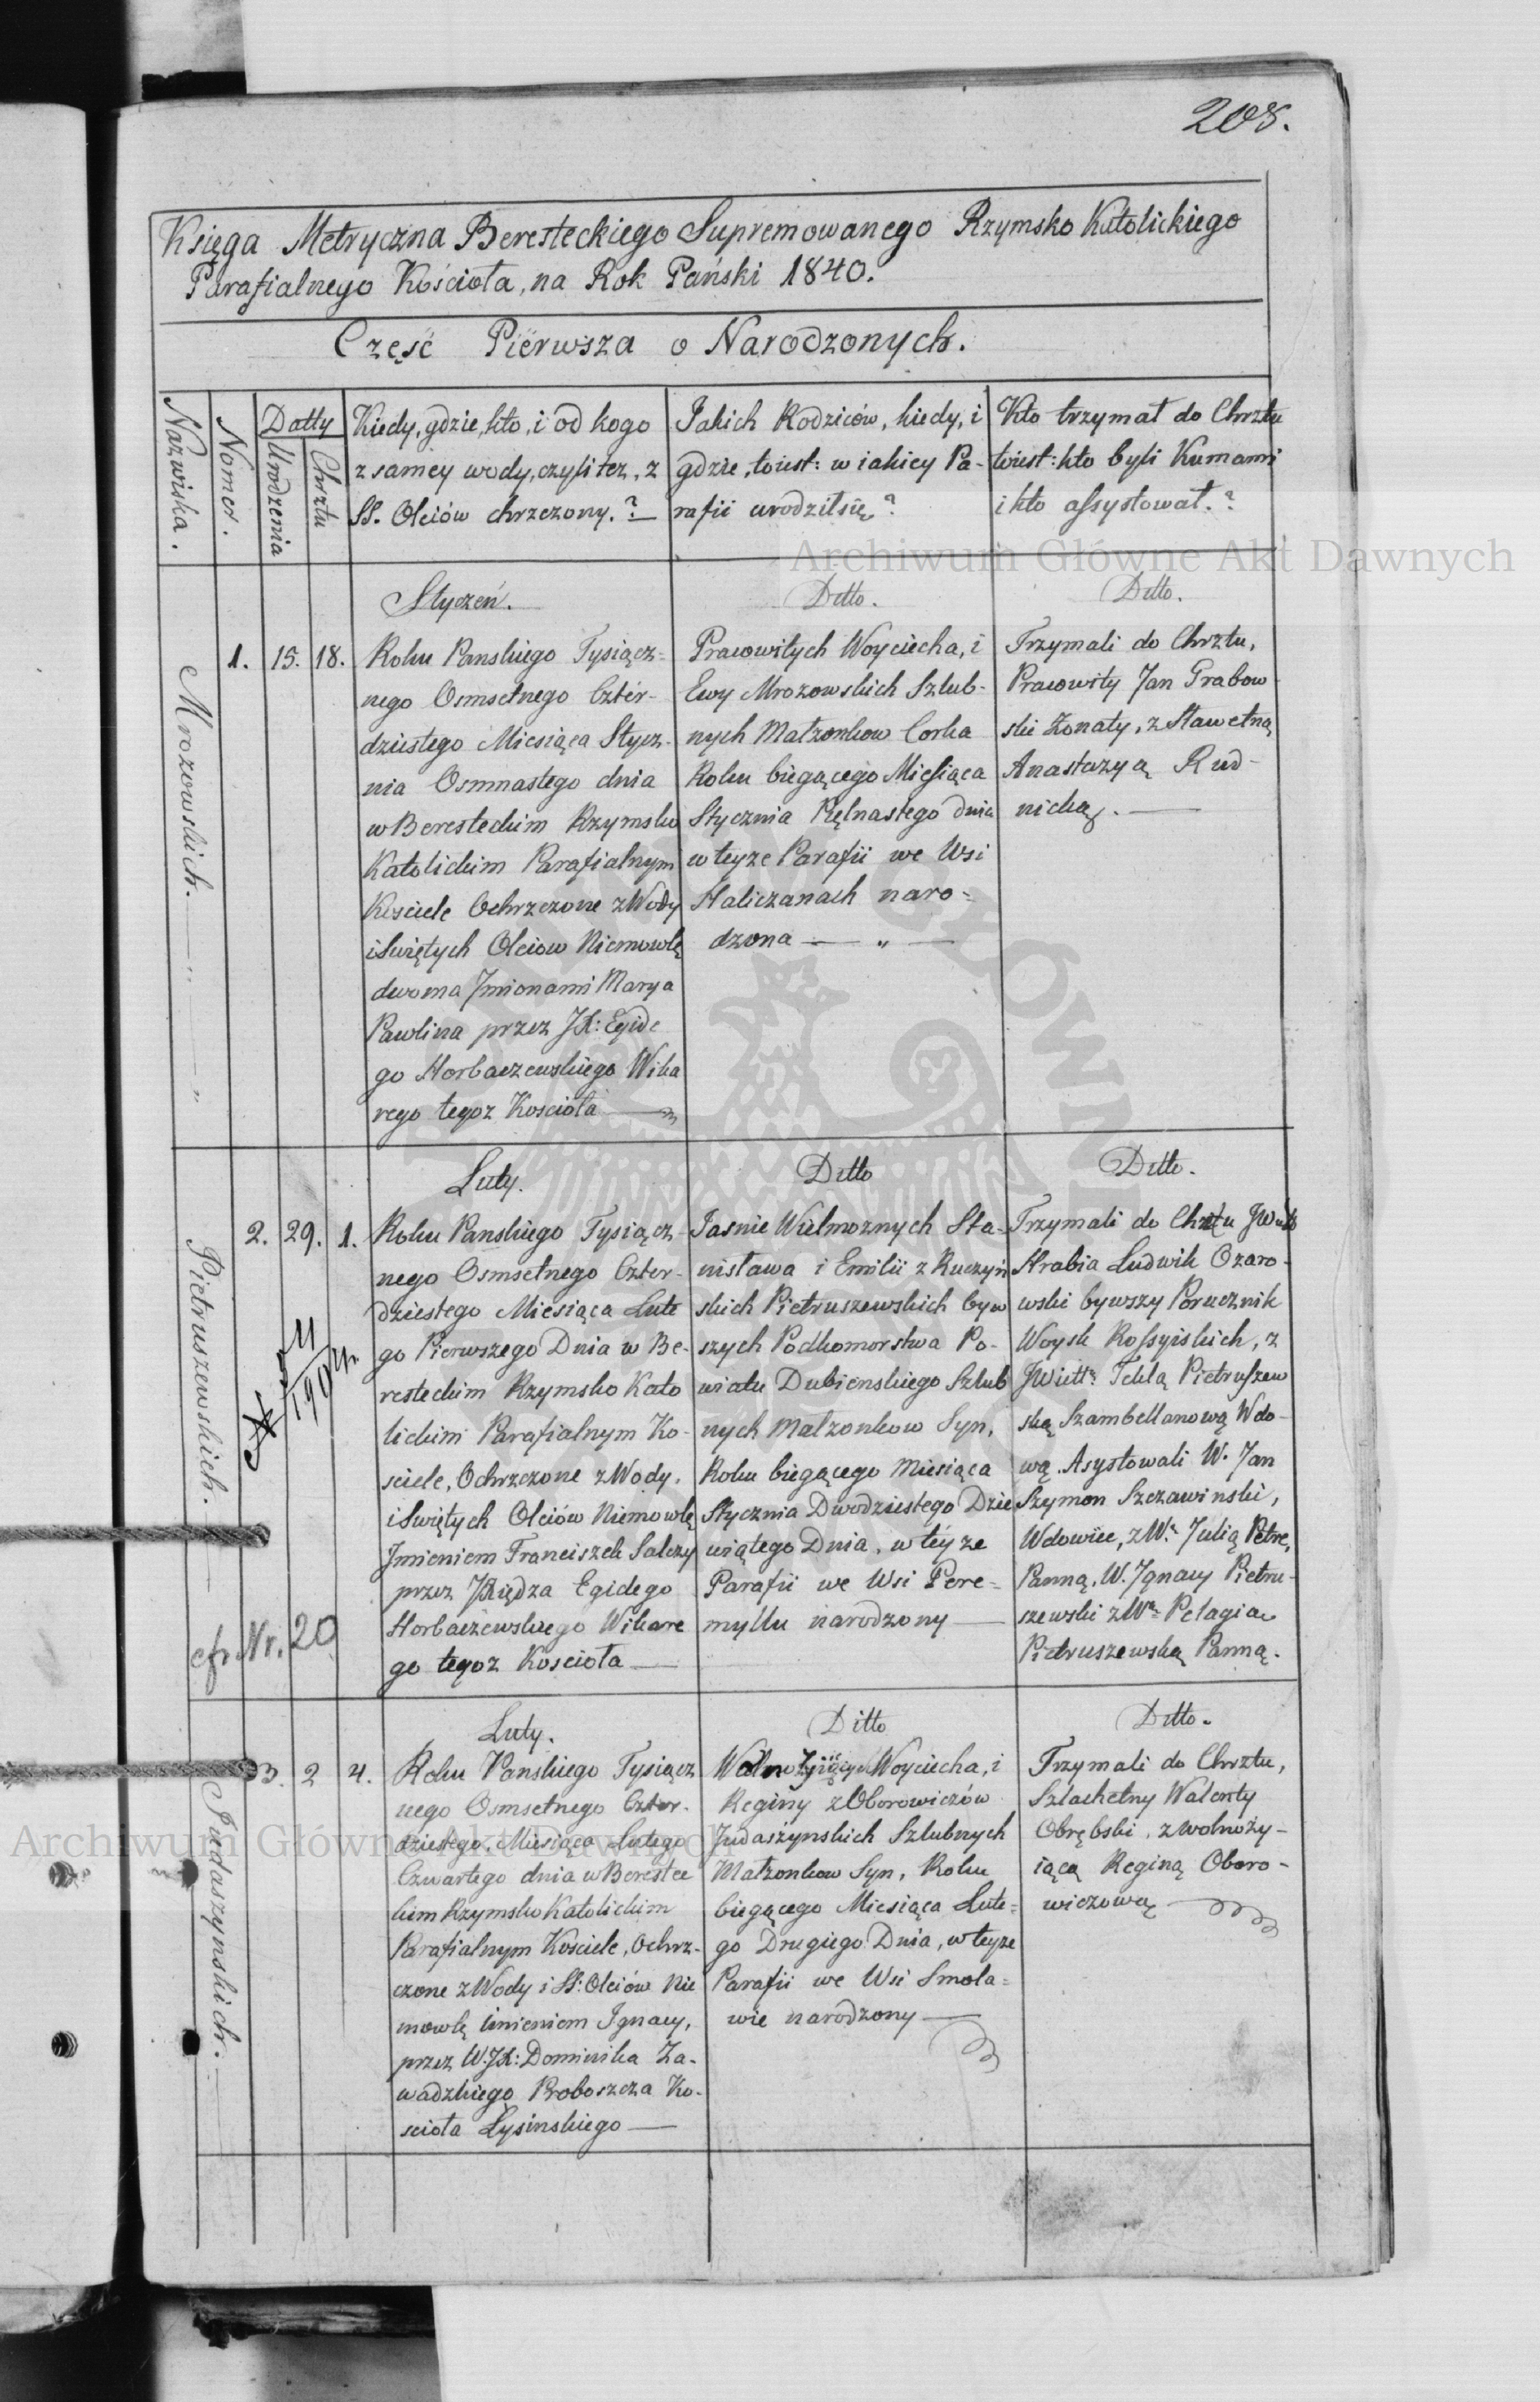 208.
Księga Metryczna Beresteckiego Supremowanego Rzymsko Katolickiego
Parafialnego Kościoła, na Rok Pański 1840.
Część Pierwsza o Narodzonych.
Nazwiska.
Nomer.
Datty
Urodzenia
Chrztu
Kiedy, gdzie, kto, i od kogo
z samey wody, czyli tez, z
SS. Oleiów chrzczony.?
Jakich Rodziców, kiedy, i
gdzie, toiest: w iakiey Pa-
rafii urodził się?
Kto trzymał do Chrztu
toiest: kto byli Kumami
i kto assystował.?
Archiwum Główne Akt Dawnych
Mrozowskich.
1. 15. 18.
Styczeń.
Roku Panskiego Tysiącz-
nego Osmsetnego Czter-
dziestego Miesiąca Stycz-
nia Osmnastego dnia
w Beresteckim Rzymsko
Katolickim Parafialnym
Kosciele Ochrzczone z Wody
i Swiętych Oleiow Niemowlę
dwoma Jmionami Marya
Pawlina przez JX: Egide
go Horbaczewskiego Wika
rego tegoz Kosciola
Ditto.
Pracowitych Woyciecha, i
Ewy Mrozowskich Szlub-
nych Matzonkow Corka
Roku biegącego Miesiąca
Stycznia Piętnastego dnia
w teyze Parafii we Wsi
Haliczanach naro-
dzona — „ —
Ditto.
Trzymali do Chrztu,
Pracowity Jan Grabow-
ski Zonaty, z Sławetną
Anastazyą Rud-
nicką.
Pietruszewskich.
2. 29. 1.
cfr Nr. 20
Luty.
Roku Panskiego Tysiącz-
nego Osmsetnego Czter-
dziestego Miesiąca Lute
go Pierwszego Dnia w Be-
resteckim Rzymsko Kato
lickim Parafialnym Ko-
sciele, Ochrzczone z Wody,
i Swiętych Oleiów Niemowlę
Jmieniem Franciszek Salezy
przez JXiędza Egidego
Horbaczewskiego Wikare
go tegoz Kosciola
Ditto
Jasnie Wielmoznych Sta-
nisława i Emilii z Ruczyń
skich Pietruszewskich byw
szych Podkomorstwa Po-
wiatu Dubienskiego Szlub
nych Matzonkow Syn,
Roku biegącego Miesiąca
Stycznia Dwodziestego Dzie
wiątego Dnia, w teyze
Parafii we Wsi Pere-
mylu narodzony
Ditto.
Trzymali do Chrztu
Hrabia Ludwik Ozaro-
wski bywszy Porucznik
Woysk Rossyiskich, z
Teklą Pietruszew
ską Szambellanową Wdo-
wą. Asystowali W. Jan
Szymon Szczawinski,
Wdowiec, z Julią
Panną, W. Jgnacy Pietru-
szewski z Pelagią
Pietruszewską Panną.
Judaszynskich.
3. 2 4.
Luty.
Roku Panskiego Tysiącz
nego Osmsetnego Czter-
dziestego Miesiąca Lutego
Czwartego dnia w Berestec
kim Rzymsko Katolickim
Parafialnym Kosciele, Ochrz-
czone z Wody i SS: Oleiów Nie
mowlę imieniem Ignacy,
przez W. JX: Dominika Za-
wadzkiego Proboszcza Ko-
sciola Łysinskiego
Ditto
Woyciecha, i
Reginy z Oborowiczów
Judaszynskich Szlubnych
Matzonkow Syn, Roku
biegącego Miesiąca Lute-
go Drugiego Dnia, w teyze
Parafii we Wsi Smola-
wie narodzony
Ditto.
Trzymali do Chrztu,
Szlachetny Walenty
Obrębski, z wolnoży-
iącą Reginą Oboro-
wiczową
Archiwum Główne Akt Dawnych